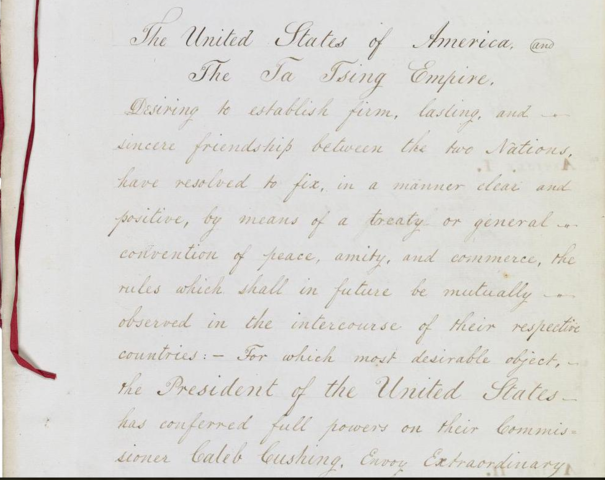 The United States of America, and
The Ta Tsing Empire,
Desiring to establish firm, lasting, and
sincere friendship between the two Nations,
have resolved to fix, in a manner clear and
positive, by means of a treaty or general
convention of peace, amity, and commerce, the
rules which shall in future be mutually
observed in the intercourse of their respective
countries:— For which most desirable object,
the President of the United States
has conferred full powers on their Commis=
sioner Caleb Cushing, Envoy Extraordinary